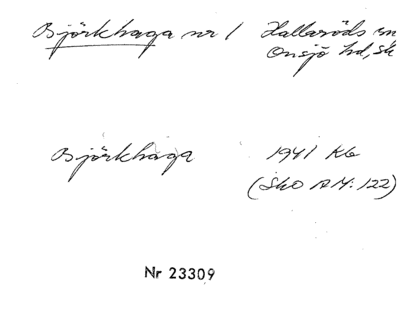 Björkhaga nr 1 Hallaröds sn
Onsjö hd, Sk
Björkhaga 1941 Kb
(SkO AM: 122)
Nr 23309